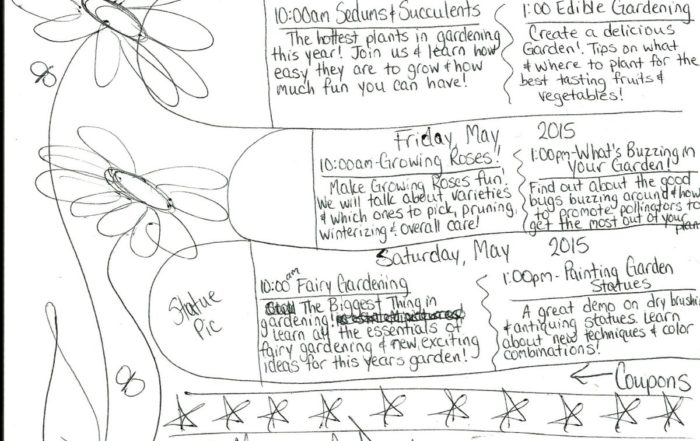 10:00am Seduns & Succulents
The hottest plants in gardening
this year! Join us & learn how
easy they are to grow & how
much fun you can have!
1:00 Edible Gardening
Create a delicious
Garden! Tips on what
& where to plant for the
best tasting fruits &
vegetables!
Friday, May 2015
10:00am-Growing Roses!
Make Growing Roses fun!
We will talk about varieties
& which ones to pick, pruning,
winterizing & overall care!
1:00pm-What's Buzzing in
Your Garden!
Find out about the good
bugs buzzing around & how
to promote pollinators to
get the most out of your
plan
Saturday, May 2015
Statue
Pic
10:00am Fairy Gardening
The Biggest Thing in
gardening!
Learn all the essentials of
fairy gardening & new, exciting
ideas for this years garden!
1:00pm- Painting Garden
Statues
A great demo on dry brushi
& antiquing statues. Learn
about new techniques & color
combinations!
← Coupons